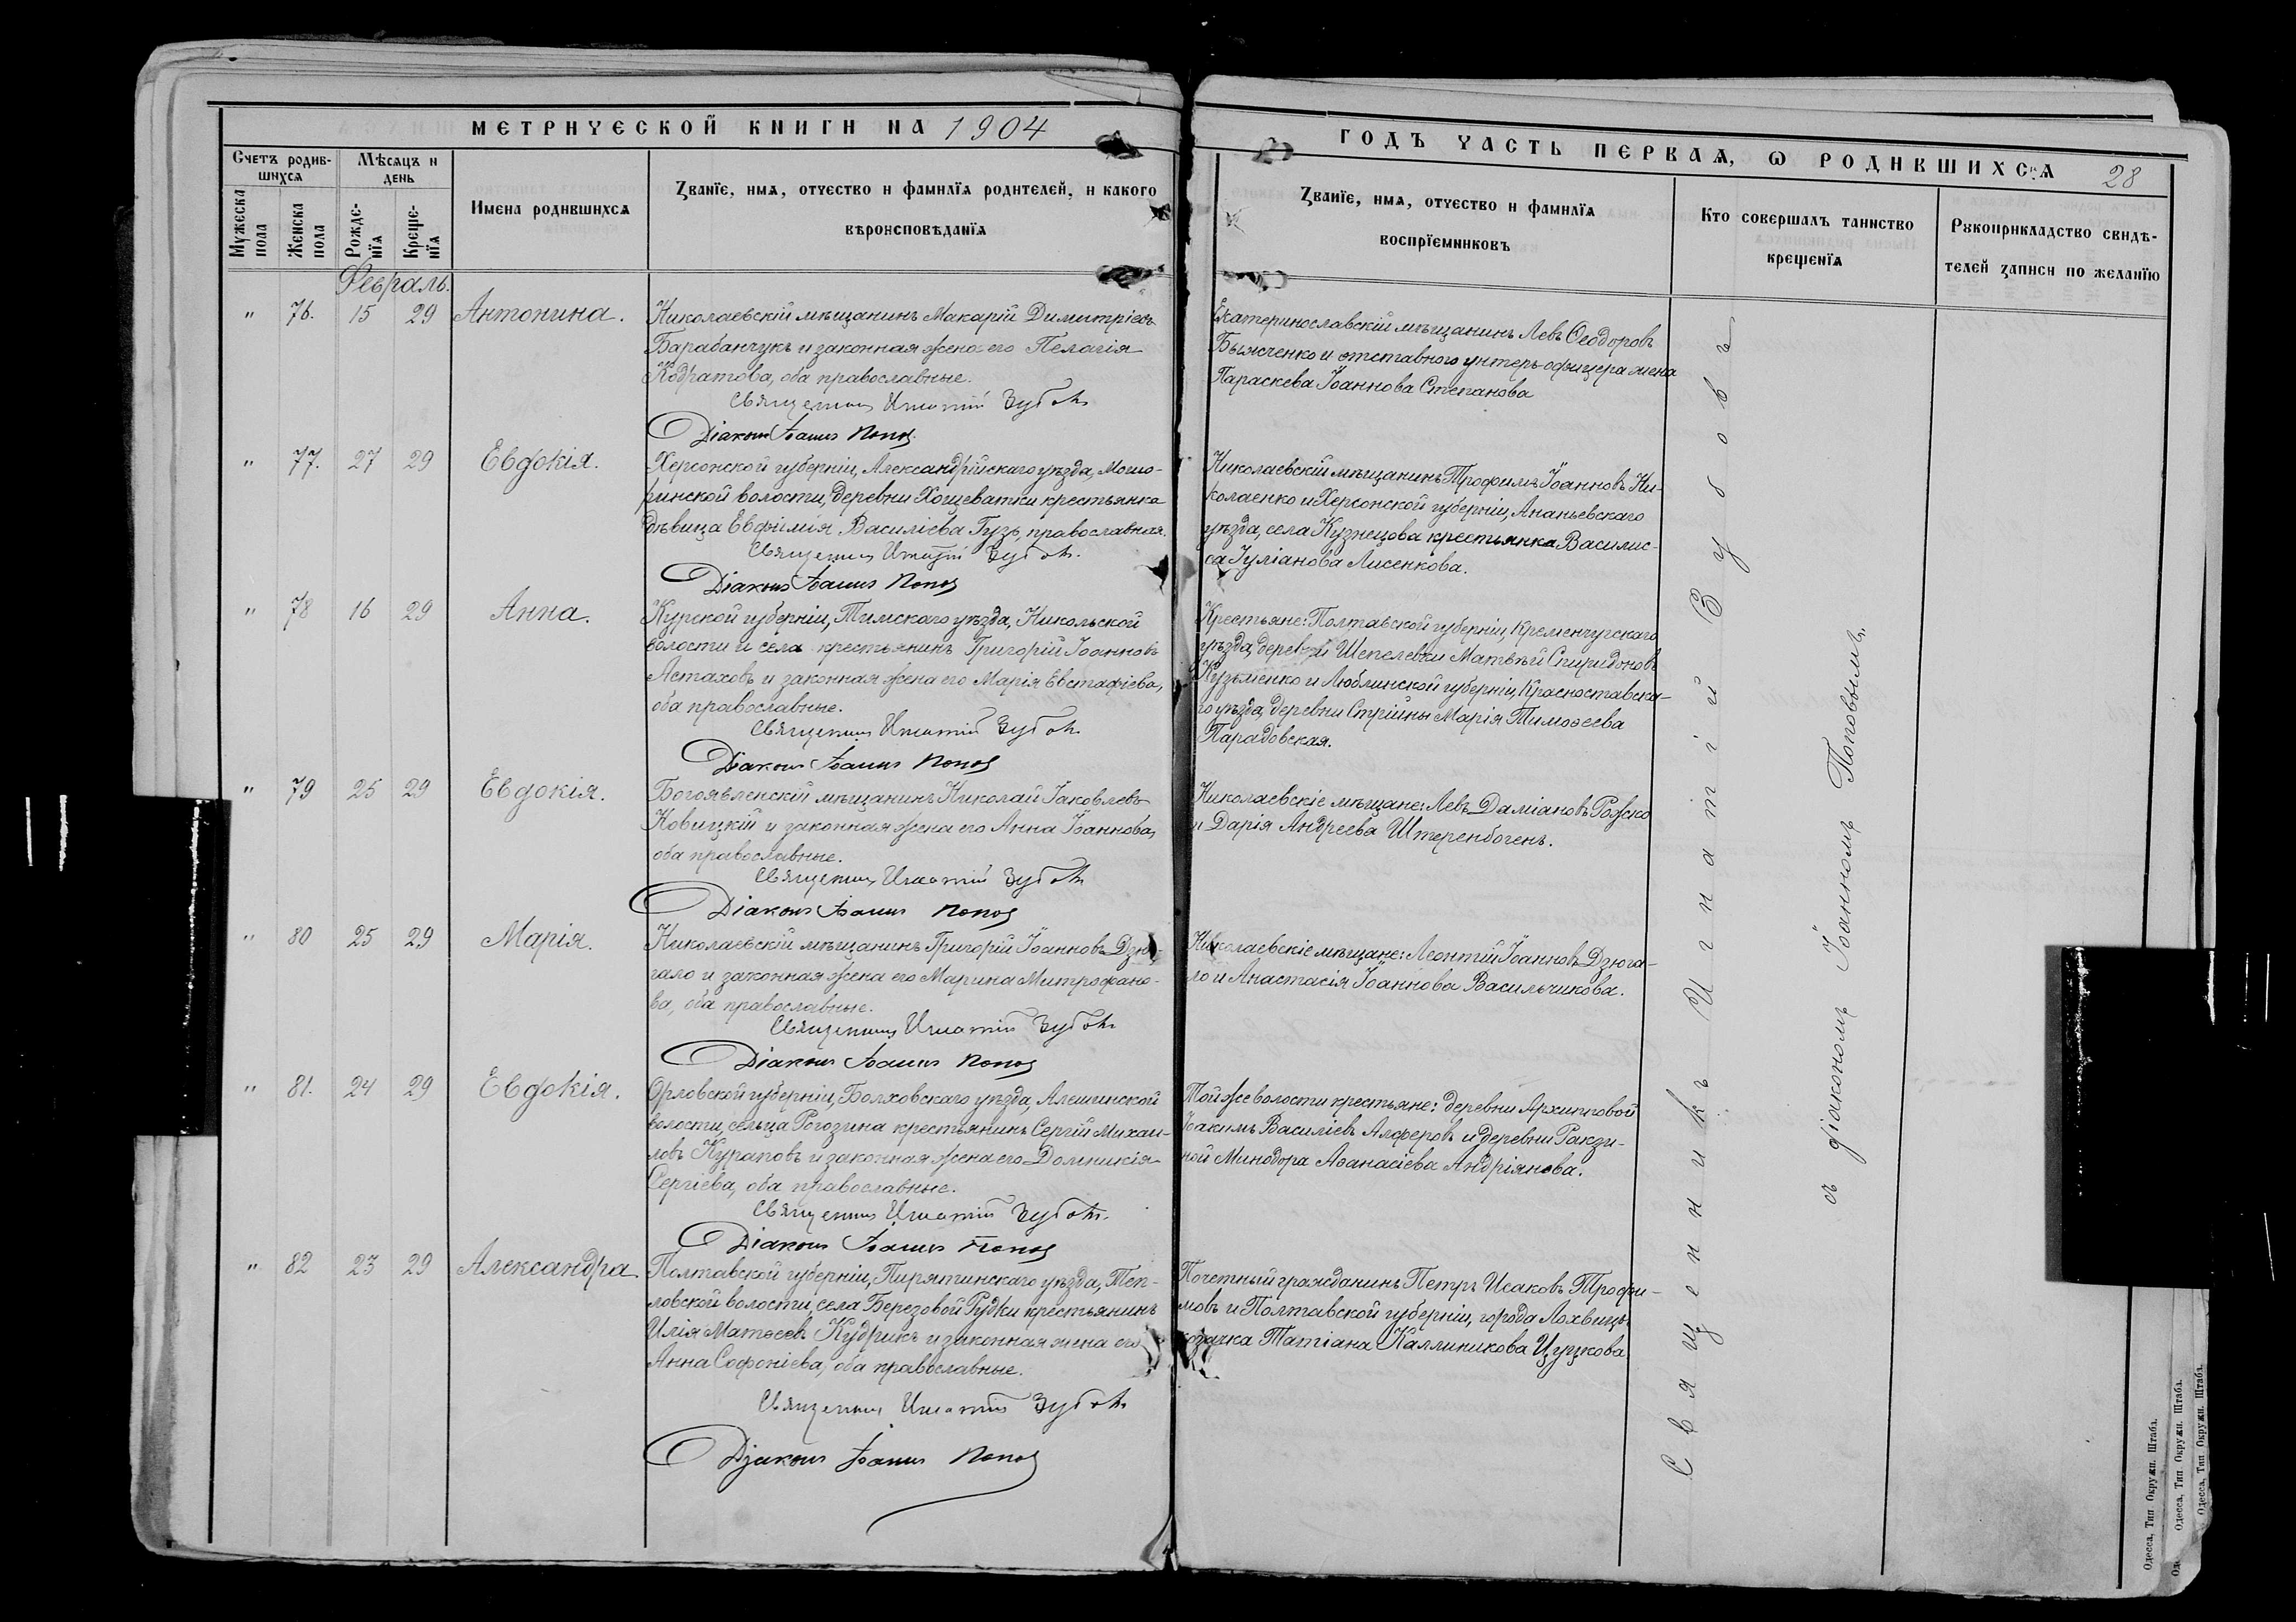 МЕТРИЧЕСКОЙ КНИГИ НА 1904
Счетъ родив-
шихся
Мѣсяцъ и
день
Мужеска
пола
Женска
пола
Рожде-
нїя
Креще-
нїя
Имена родившихся
Званїе, имя, отчество и фамилїя родителей, и какого
вѣроисповѣданїя
Февраль.
" 76. 15 29 Антонина. Николаевскій мѣщанинъ Макарій Димитріевъ
Барабанчукъ и законная жена его Пелагія
Кодратова, оба православные.
Священникъ Игнатій Зубовъ
Діаконъ Іоаннъ Поповъ
" 77. 27 29 Евдокія. Херсонской губерніи, Александрійскаго уѣзда, Мошо-
ринской волости, деревни Хощеватки крестьянка
дѣвица Евфимія Василіева Гузь, православная.
Священникъ Игнатій Зубовъ.
Діаконъ Іоаннъ Поповъ
" 78 16 29 Анна. Курской губерніи, Тимскаго уѣзда, Никольской
волости и села крестьянинъ Григорій Іоанновъ
Астаховъ и законная жена его Марія Евстафіева,
оба православные.
Священникъ Игнатій Зубовъ
Діаконъ Іоаннъ Поповъ
" 79 25 29 Евдокія. Богоявленскій мѣщанинъ Николай Іаковлевъ
Новицкій и законная жена его Анна Іоаннова,
оба православные.
Священникъ Игнатій Зубовъ
Діаконъ Іоаннъ Поповъ
" 80 25 29 Марія. Николаевскій мѣщанинъ Григорій Іоанновъ Дзю-
гало и законная жена его Марина Митрофано-
ва, оба православные.
Священникъ Игнатій Зубовъ
Діаконъ Іоаннъ Поповъ
" 81. 24 29 Евдокія. Орловской губерніи, Болховскаго уѣзда, Алешинской
волости, сельца Рогозина крестьянинъ Сергій Михаи-
ловъ Кураповъ и законная жена его Домникія
Сергіева, оба православные.
Священникъ Игнатій Зубовъ.
Діаконъ Іоаннъ Поповъ
" 82 23 29 Александра. Полтавской губерніи, Пирятинскаго уѣзда, Теп-
ловской волости, села Березовой Рудки крестьянинъ
Илія Матѳеевъ Кудрикъ и законная жена его
Анна Софоніева, оба православные.
Священникъ Игнатій Зубовъ
Діаконъ Іоаннъ Поповъ
ГОДЪ ЧАСТЬ ПЕРВАЯ, Ѡ РОДИВШИХСЯ 28
Званїе, имя, отчество и фамилїя
воспрїемниковъ
Кто совершалъ таинство
крещенїя
Рукоприкладство свидѣ-
телей записи по желанїю
Екатеринославскій мѣщанинъ Левъ Ѳеодоровъ
и отставного унтеръ-офицера жена
Параскева Іоаннова Степанова
Николаевскій мѣщанинъ Трофимъ Іоанновъ Ни-
колаенко и Херсонской губерніи, Ананьевскаго
уѣзда, села Кузнецова крестьянка Василис-
са Іуліанова Лисенкова.
Крестьяне: Полтавской губерніи, Кременчугскаго
уѣзда, деревни Шепелевки Матвѣй Спиридоновъ
Кузьменко и Люблинской губерніи, Красноставска-
го уѣзда, деревни Стрійны Марія Тимоѳеева
Парадовская.
Николаевскіе мѣщане: Левъ Даміановъ Рожко
и Дарія Андреева Штеренбогенъ.
Николаевскіе мѣщане: Леонтій Іоанновъ Дзюга-
ло и Анастасія Іоаннова Васильчикова.
Той же волости крестьяне: деревни Архиповой
Іоакимъ Василіевъ Алферовъ и деревни Ракзи-
ной Минодора Аѳанасіева Андріянова.
Почетный гражданинъ Петръ Исаковъ Трофи-
мовъ и Полтавской губерніи, города Лохвицы
козачка Татіана Каллиникова Цуцкова
Священникъ Игнатій Зубовъ
съ діакономъ Іоанномъ Поповымъ.
Одесса, Тип Окружн. Штаба.
Одесса, Тип. Окружн. Штаба.
Одесса, Тип. Окружн. Штаба.